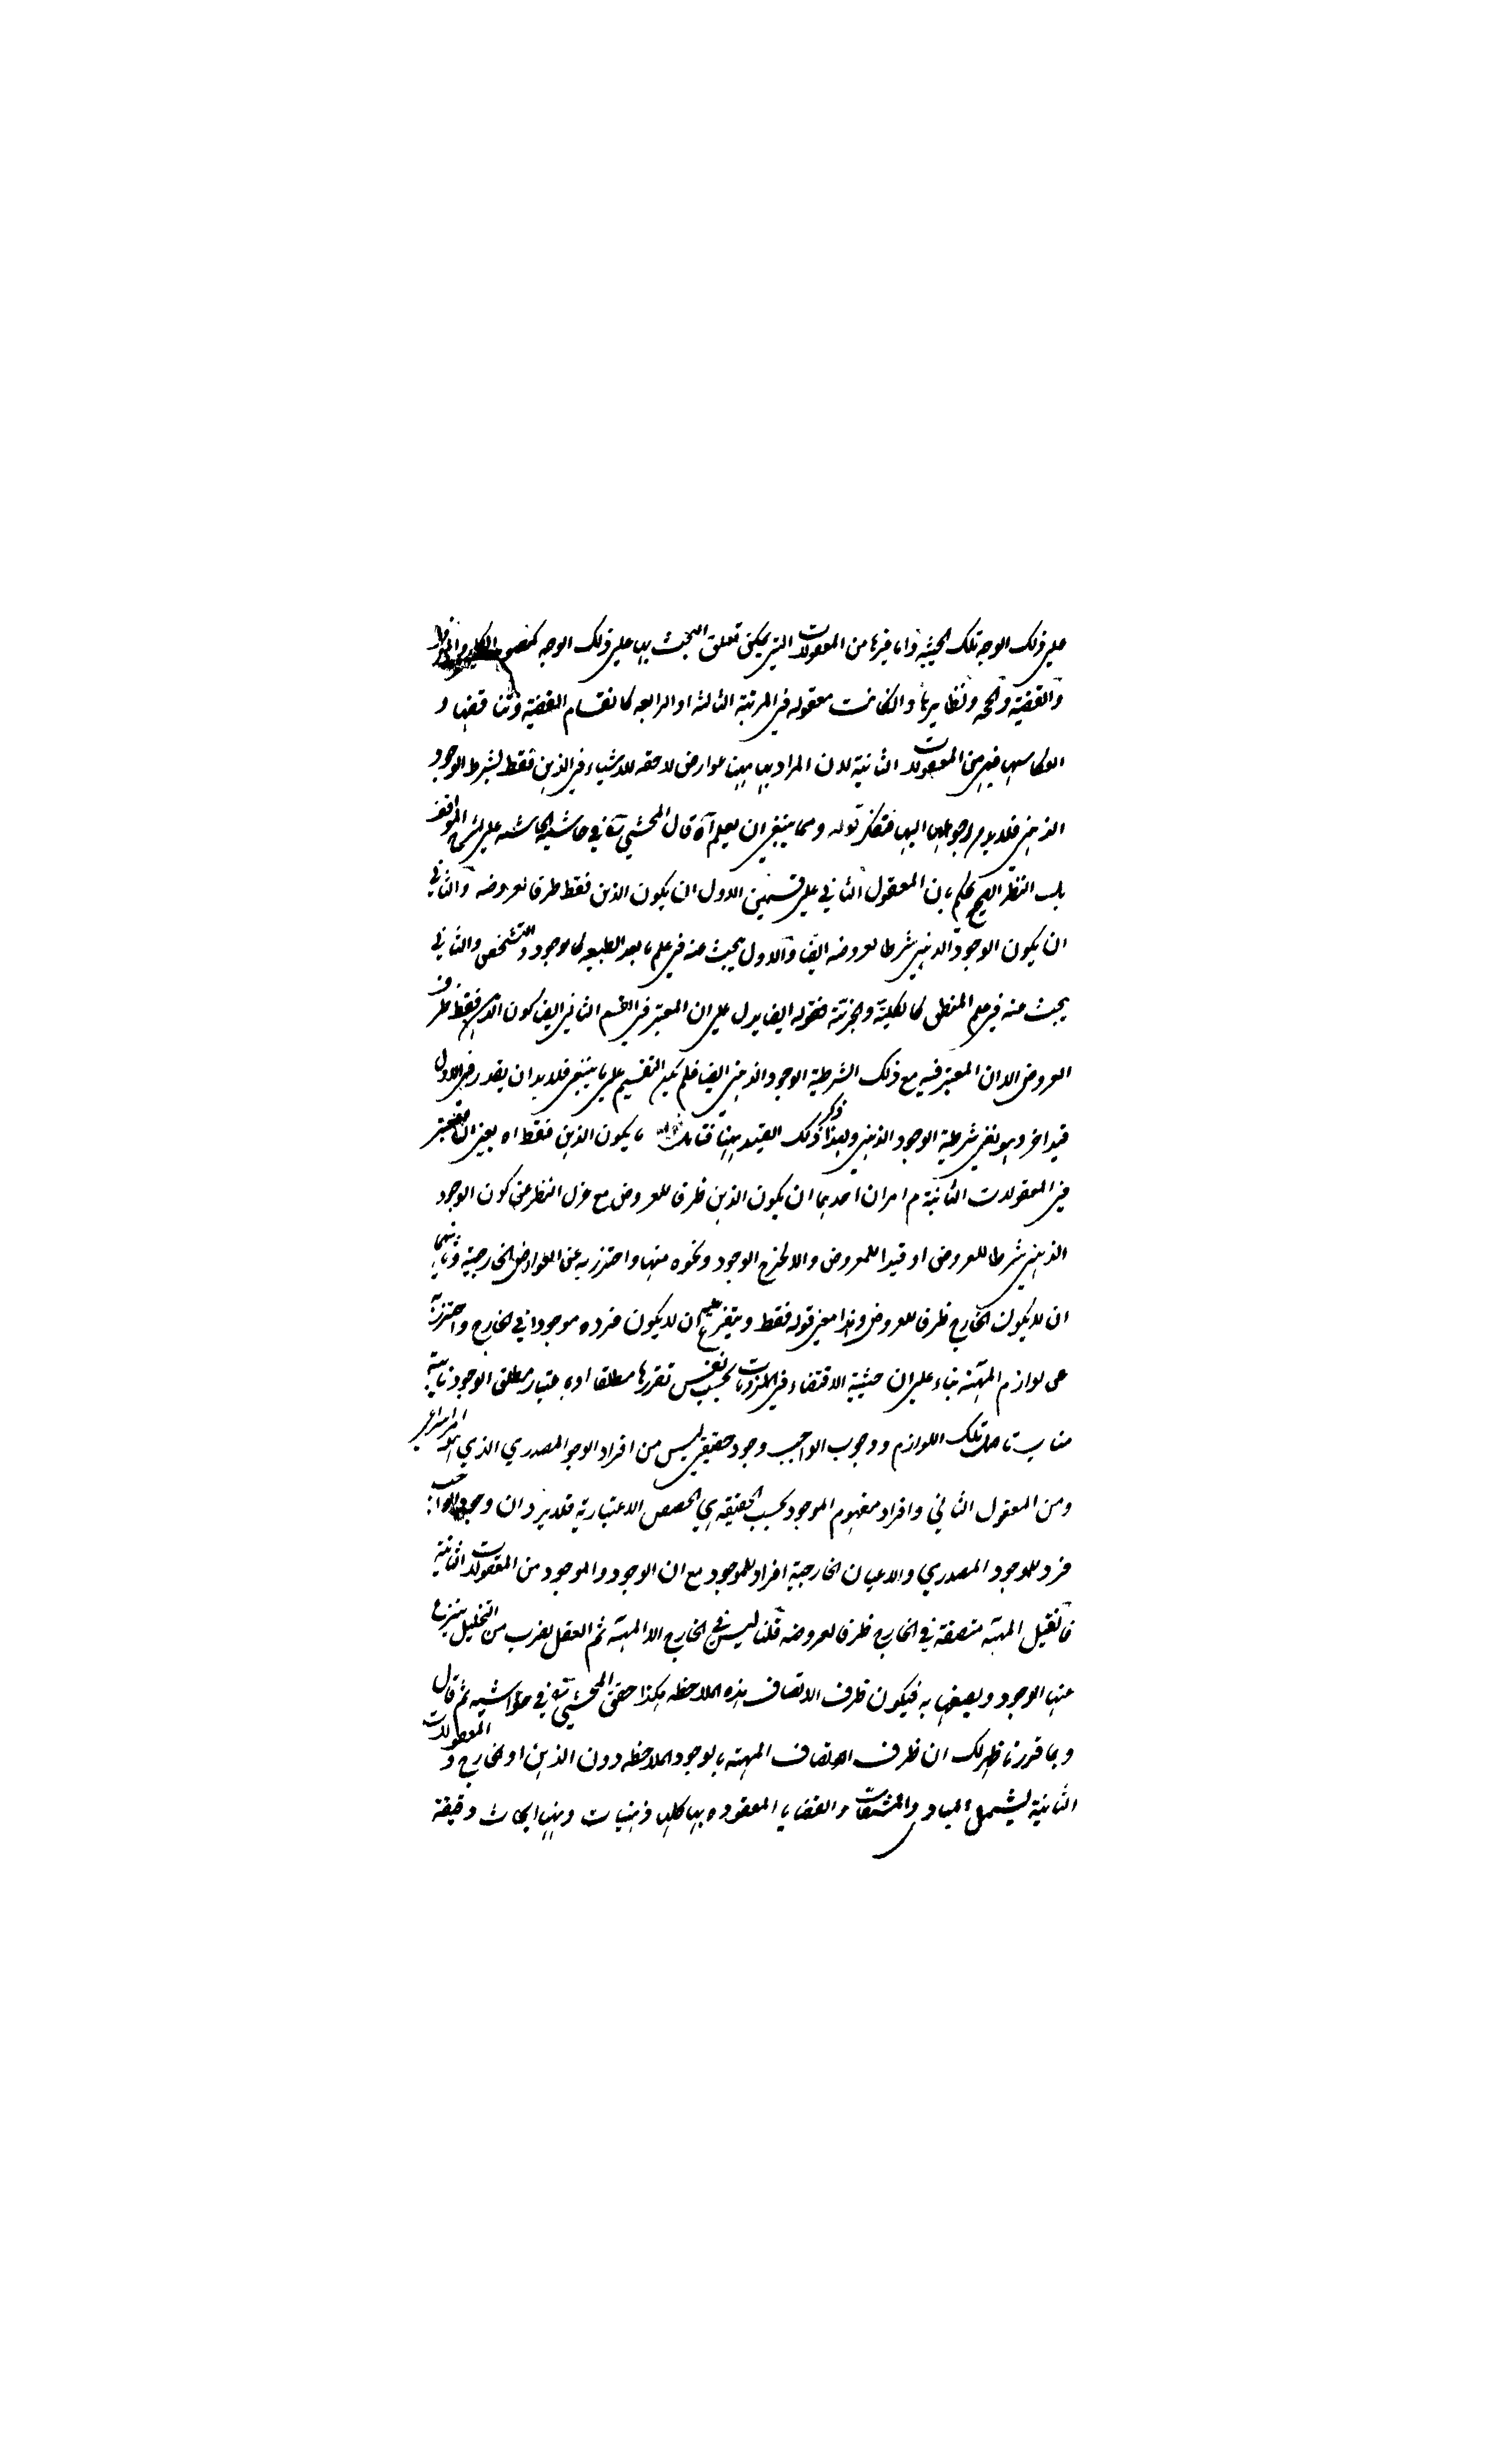 على ذلك الوجه تلك الحيثية واما غيرها من المعقولات التي يمكن تعلق البحث بها على ذلك الوجه كمفهوم الكلي
والقضية والحجة ونظايرها وان كانت معقوله في المرتبة الثالثه او الرابعه كانقسام القضية وتناقضها و
انعكاسها فهي من المعقولات الثانية لان المراد بها ههنا عوارض لاحقه للاشياء في الذهن فقط بشرط الوجود
الذهني فلا بد من اليها فتفكر قوله ومما ينبغي ان يعلم اه قال المحشي في حاشية الحاشيه على شرح المواقف
باب النظر الصحيح يحكم بان المعقول الثاني على قسمين الاول ان يكون الذهن فقط ظرفا لعروضه والثاني
ان يكون الوجود الذهني شرطا لعروضه ايضا والاول يبحث عنه في علم ما بعد الطبيعه كالوجود والتشخص والثاني
يبحث عنه في علم المنطق كالكلية والجزئية فقوله ايضا يدل على ان المعتبر في القسم الثاني ايضا كون الذهن فقط ظرف
العروض الا ان المعتبر فيه مع ذلك الشرطية الوجود الذهني ايضا فلم يكن التقسيم على ما ينبغي فلا بد ان يقدر في الاول
قيد اخر وهو نفي شرطية الوجود الذهني ولهذا ذكر ذلك القيد ههنا فتامل قوله ما يكون الذهن فقط اه يعني ان المعتبر
في المعقولات الثانية امران احدهما ان يكون الذهن ظرفا للعروض مع عزل النظر عن كون الوجود
الذهني شرطا للعروض او قيدا للمعروض والا لخرج الوجود ونحوه منها واحترز به عن العوارض الخارجية وثانيهما
ان لا يكون الخارج ظرفا للعروض وهذا معنى قوله فقط ويتفرع عليه ان لا يكون فرده موجودا في الخارج واحترز به
عن لوازم المهية بناء على ان حيثية الاقتضاء في الملزومات بحسب نفس تقررها مطلقا او باعتبار مطلق الوجود
تلك اللوازم ووجوب الواجب وجود حقيقي ليس من افراد الوجود المصدري الذي هو امر انتزاعي
ومن المعقول الثاني وافراد مفهوم الموجود بحسب الحقيقه هي الحصص الاعتبارية فلا يرد ان وجود الواجب
فرد للوجود المصدري والاعيان الخارجية افراد للموجود مع ان الوجود والموجود من المعقولات الثانية
فان قيل المهية متصفة في الخارج ظرفا لعروضه قلنا ليس في الخارج الا المهية ثم العقل بضرب من التحليل ينتزع
عنها الوجود ويصفها به فيكون ظرف الاتصاف هذه الملاحظه هكذا حقق المحشي في حواشيه ثم قال
وبما قررنا ظهر لك ان ظرف اتصاف المهية بالوجود الملاحظه دون الذهن او الخارج والمعقولات
الثانية يشمل المبادي والمشتقات والقضايا المعقوده بها كلها ذهنيات وههنا ابحاث دقيقة